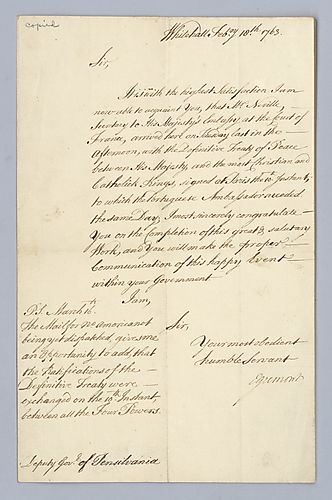 copied
Whitehall Feb.ry 18th. 1763.
Sir,
It is with the highest Satisfaction I am
now able to acquaint You, that Mr. Neville,
Secretary to His Majesty's Embassy at the Court of
France, arrived here on Tuesday last in the
Afternoon, with the Definitive Treaty of Peace
between His Majesty, and the most Christian and
Catholick Kings, signed at Paris the 10th. Instant;
to which the Portuguese Ambassador acceeded
the same Day; I most sincerely congratulate
You on the Completion of this great & salutary
Work, and You will make the proper
Communication of this happy Event
within your Government
I am,
P.S. March 16th.
The Mail for No. America not
being yet dispatched, gives me
an Opportunity to add, that
the Ratifications of the
Definitive Treaty were
exchanged on the 10th. Instant
between all the Four Powers.
Sir,
Your most obedient
humble Servant
Egremont
Deputy Gov.r of Pensilvania